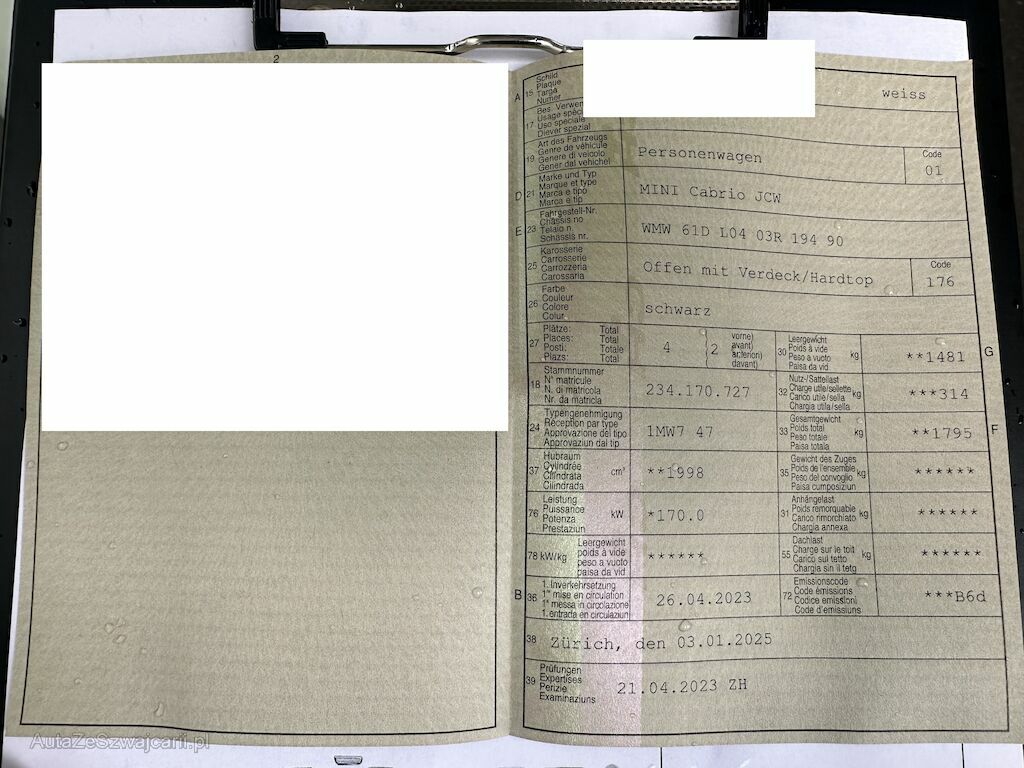 2
A 15 Schild
Plaque
Targa
Numer
weiss
17 Bes. Verwen
Usage spéc
Uso speciale
Diever spezial
19 Art des Fahrzeugs
Genre de véhicule
Genere di veicolo
Gener dal vehichel
Personenwagen
Code
01
D 21 Marke und Typ
Marque et type
Marca e tipo
Marca e tip
MINI Cabrio JCW
E 23 Fahrgestell-Nr.
Châssis no
Telaio n.
Schassis nr.
WMW 61D L04 03R 194 90
25 Karosserie
Carrosserie
Carrozzeria
Carossaria
Offen mit Verdeck/Hardtop
Code
176
26 Farbe
Couleur
Colore
Colur
schwarz
27 Plätze: Total
Places: Total
Posti: Totale
Plazs: Total
4
2
vorne)
avant)
anteriori)
davant)
30 Leergewicht
Poids à vide
Peso a vuoto
Paisa da vid
kg
**1481
G
18 Stammnummer
N° matricule
N. di matricola
Nr. da matricla
234.170.727
32 Nutz-/Sattellast
Charge utile/sellette
Carico utile/sella
Chargia utila/sella
kg
***314
24 Typengenehmigung
Réception par type
Approvazione del tipo
Approvaziun dal tip
1MW7 47
33 Gesamtgewicht
Poids total
Peso totale
Paisa totala
kg
**1795
F
37 Hubraum
Cylindrée
Cilindrata
Cilindrada
cm³
**1998
35 Gewicht des Zuges
Poids de l'ensemble
Peso del convoglio
Paisa cumposiziun
kg
******
76 Leistung
Puissance
Potenza
Prestaziun
kW
*170.0
31 Anhängelast
Poids remorquable
Carico rimorchiato
Chargia annexa
kg
******
78 kW/kg
Leergewicht
poids à vide
peso a vuoto
paisa da vid
******
55 Dachlast
Charge sur le toit
Carico sul tetto
Chargia sin il tetg
kg
******
B 36 1. Inverkehrsetzung
1re mise en circulation
1a messa in circolazione
1. entrada en circulaziun
26.04.2023
72 Emissionscode
Code émissions
Codice emissioni
Code d'emissiuns
***B6d
38 Zürich, den 03.01.2025
39 Prüfungen
Expertises
Perizie
Examinaziuns
21.04.2023 ZH
AutaZeSzwajcarii.pl